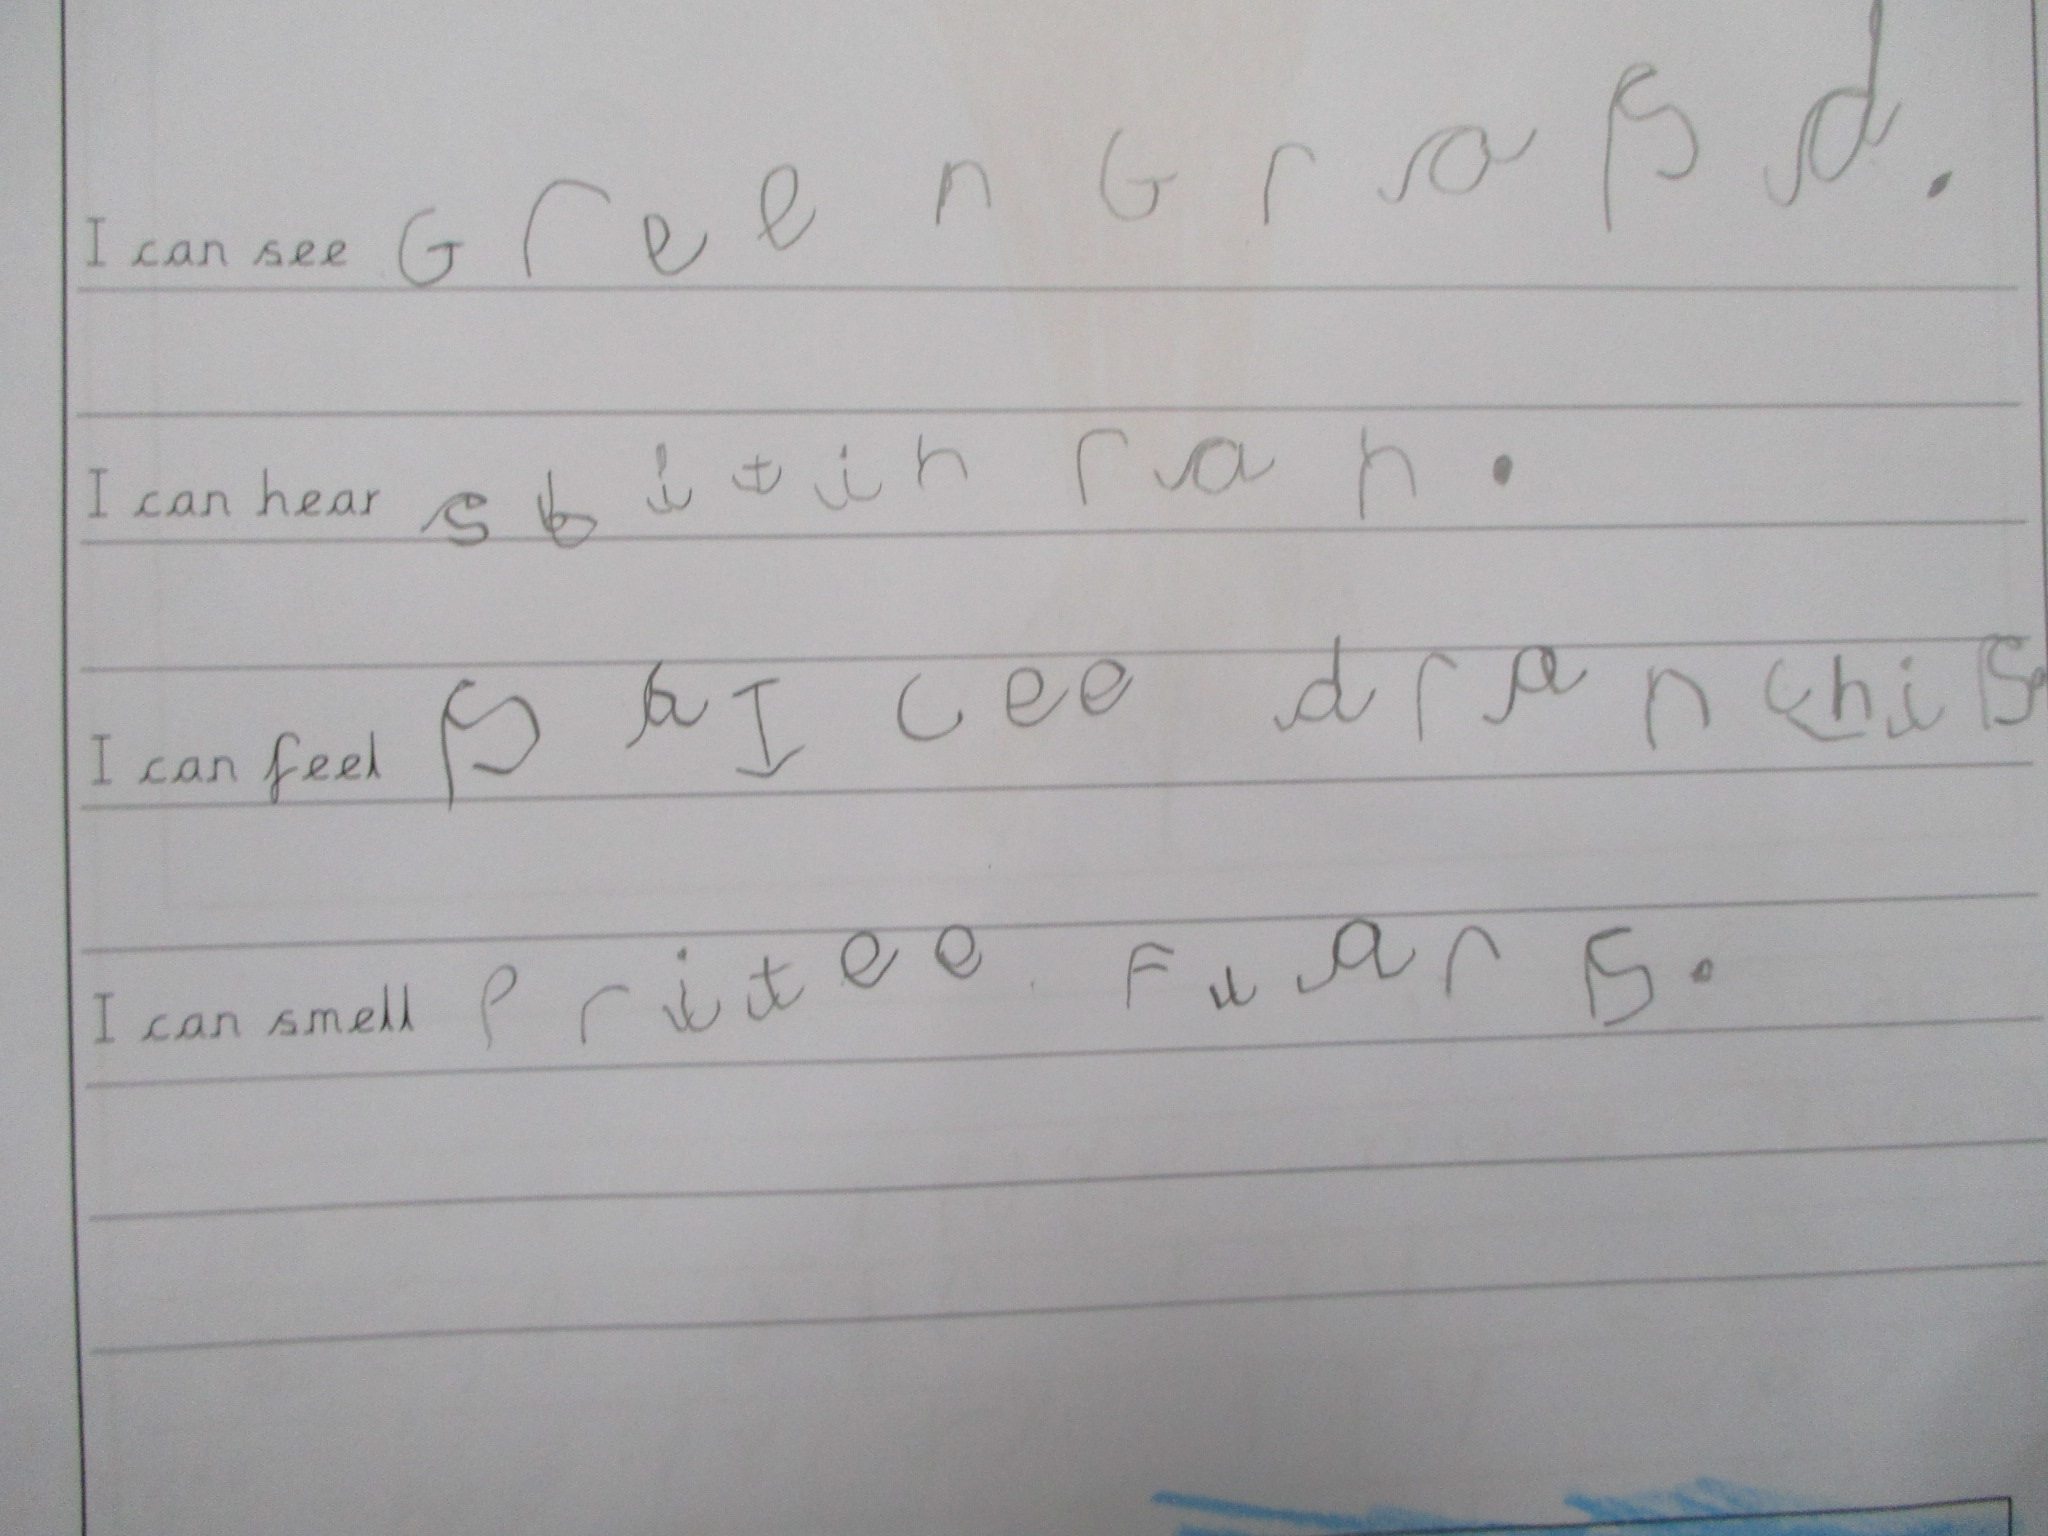 I can see Green Grasd.
I can hear sbitin ran.
I can feel saI cee dranchis.
I can smell Pritee Fuars.